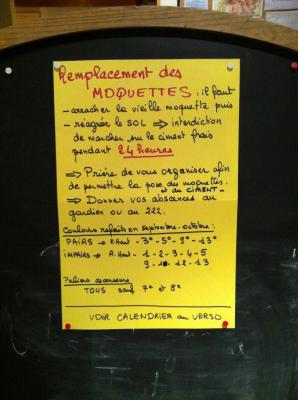 Remplacement des
MOQUETTES : il faut
- arracher la vieille moquette puis
- réagréer le SOL ⇒ interdiction
de marcher sur le ciment frais
pendant 24 heures
⇒ Prière de vous organiser afin
de permettre la pose des moquettes.
et du CIMENT-
⇒ Donner vos absences au
gardien ou au 222.
Couloirs refaits en septembre-octobre :
PAIRS → - 3° - 5° - 9° - 13°
IMPAIRS → - 1 - 2 - 3 - 4 - 5
9 - 10 - 12 - 13
Paliers ascenseurs
TOUS sauf 7e et 8e
VOIR CALENDRIER au VERSO